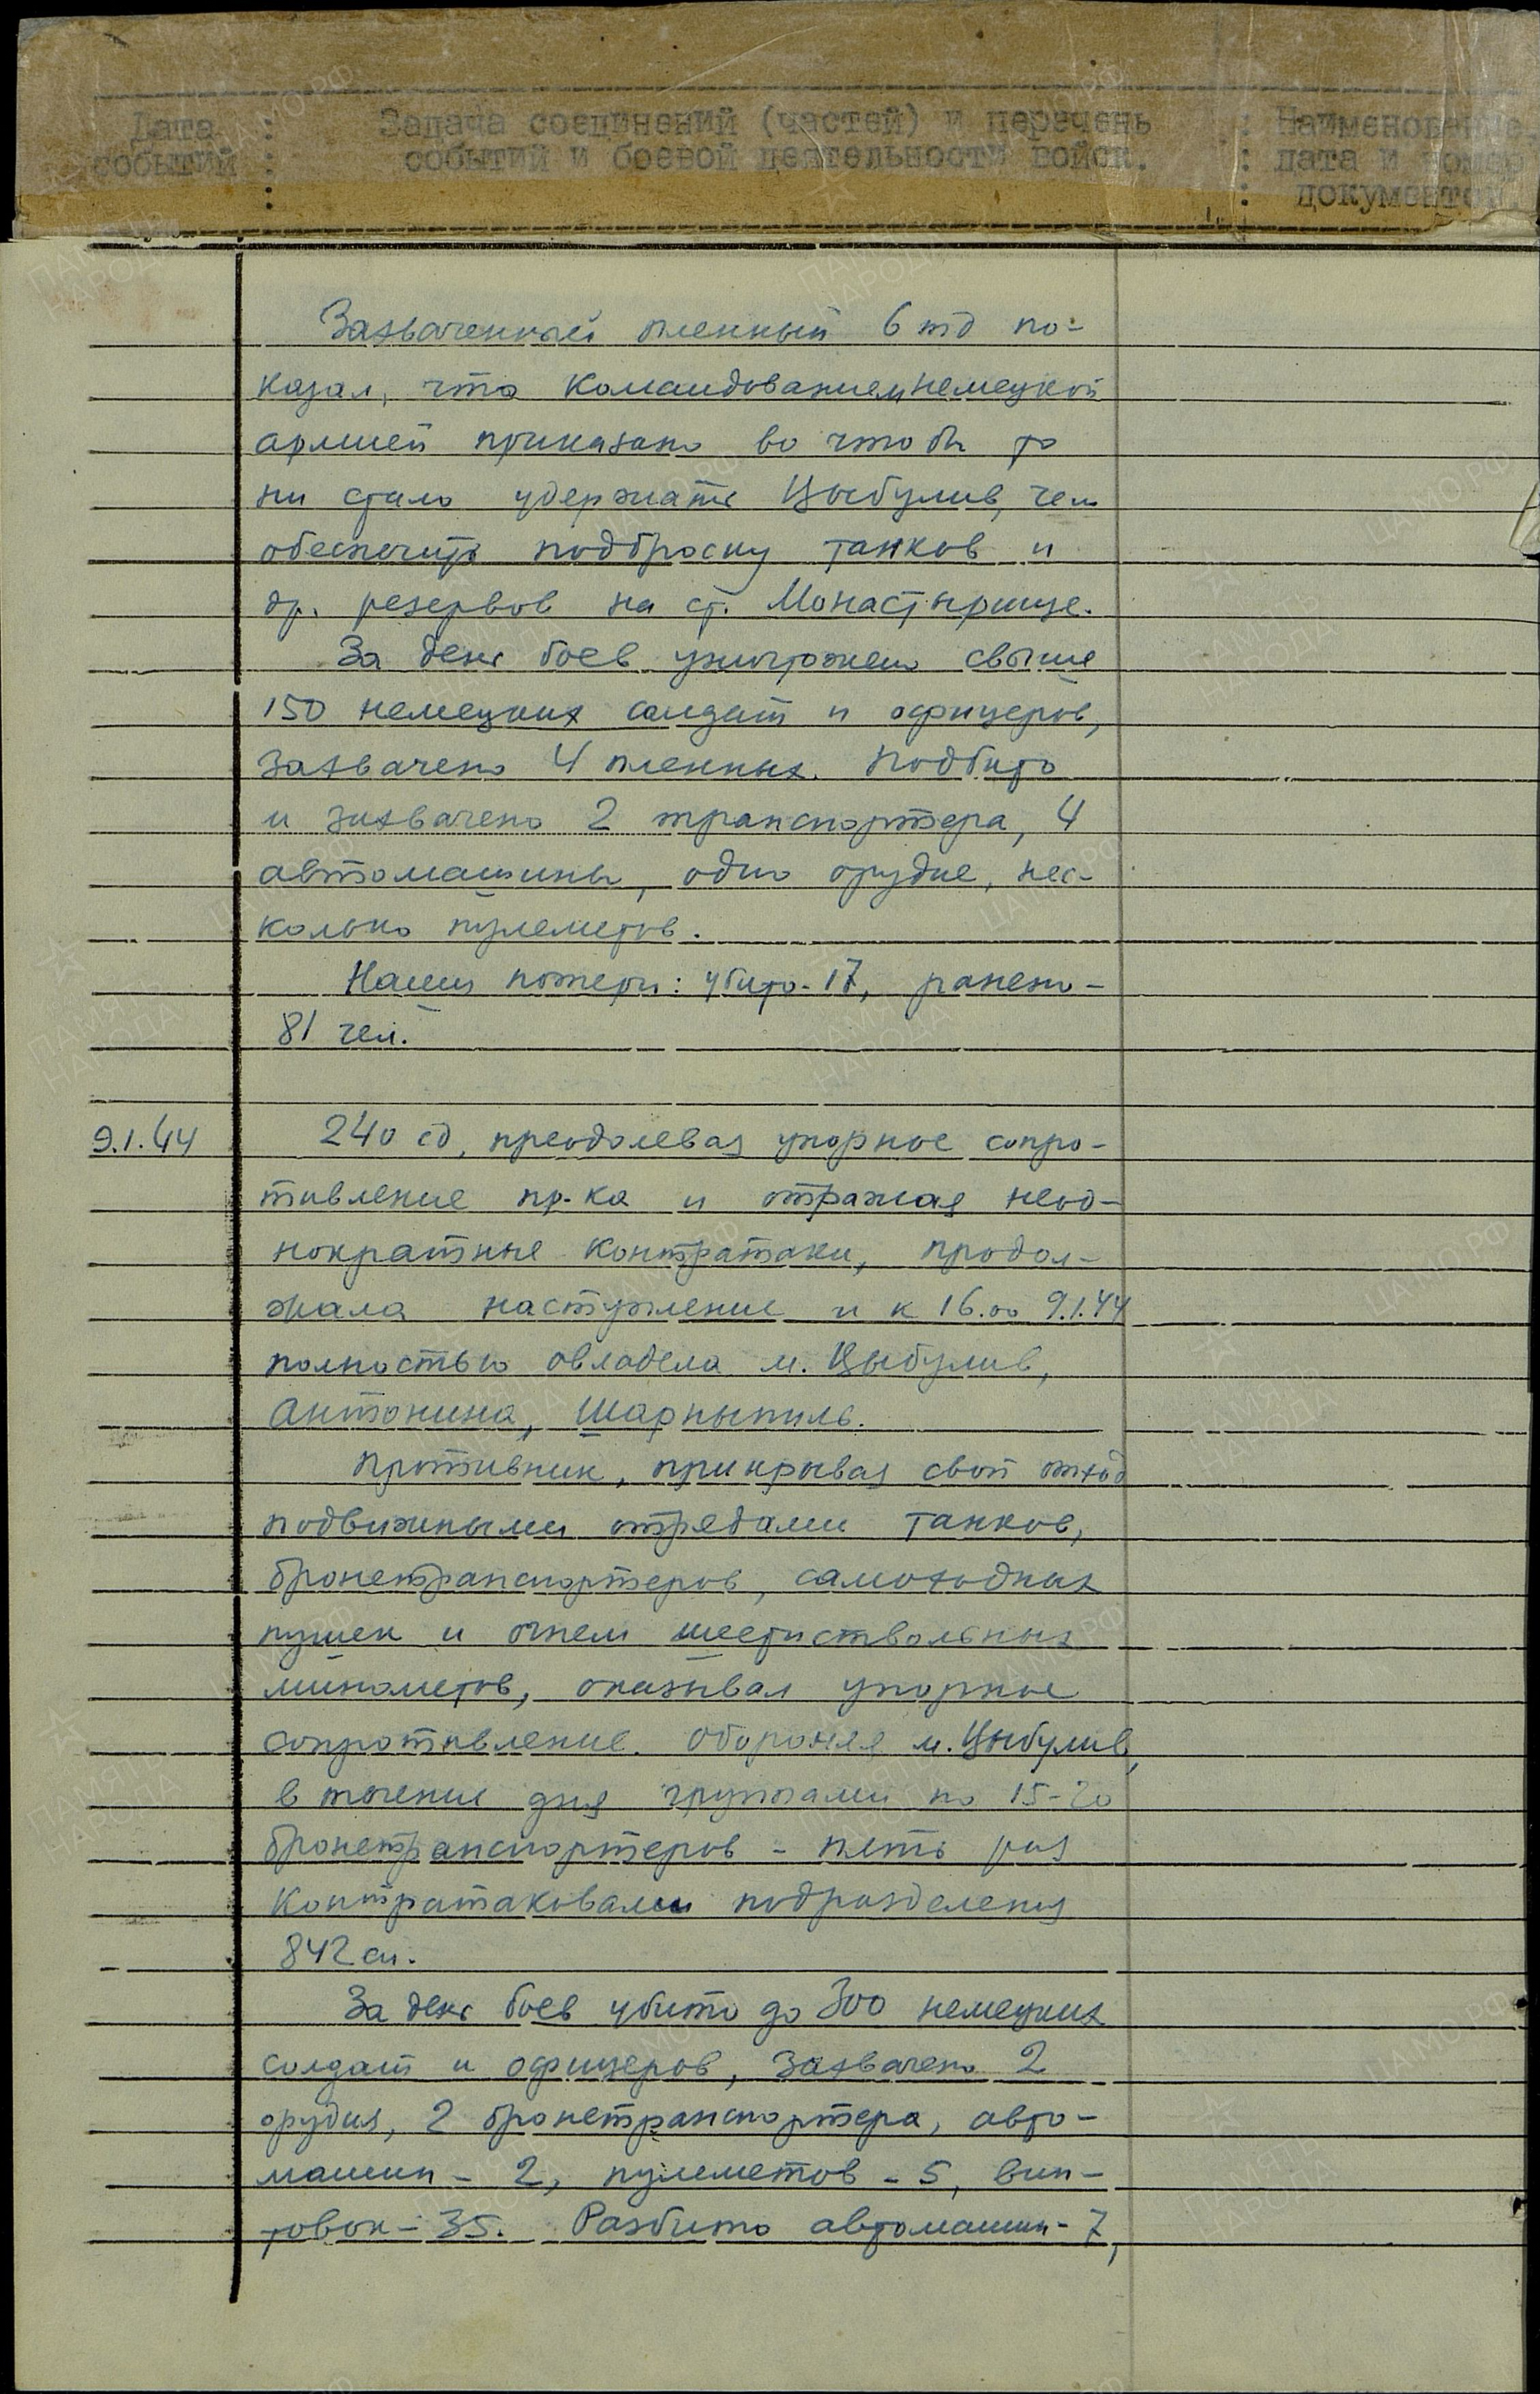 Дата : Задача соединений (частей) и перечень : Наименование
событий : событий и боевой деятельности войск. : дата и номер
: : документов.
Захваченный пленный 6 тд по-
казал, что командованием немецкой
армией приказано во что бы то
ни стало удержать Цыбулив, чем
обеспечить подброску танков и
др. резервов на ст. Монастырище.
За день боев уничтожено свыше
150 немецких солдат и офицеров,
захвачено 4 пленных. Подбито
и захвачено 2 транспортера, 4
автомашины, одно орудие, нес-
колько пулеметов.
Наши потери: убито - 17, ранено -
81 чел.
9.1.44 240 сд, преодолевая упорное сопро-
тивление пр-ка и отражая неод-
нократные контратаки, продол-
жала наступление и к 16.00 9.1.44
полностью овладела м. Цыбулив,
Антонина, Шарныпиль.
Противник, прикрывая свой отход
подвижными отрядами танков,
бронетранспортеров, самоходных
пушек и огнем шестиствольных
минометов, оказывал упорное
сопротивление. Обороняя м. Цыбулив,
в течение дня группами по 15-20
бронетранспортеров - пять раз
контратаковали подразделения
842 сп.
За день боев убито до 300 немецких
солдат и офицеров, захвачено 2
орудия, 2 бронетранспортера, авто-
машин - 2, пулеметов - 5, вин-
товок - 35. Разбито автомашин - 7,